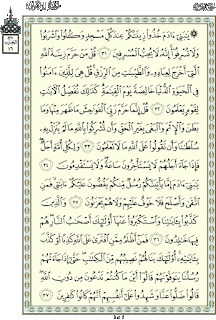 ۞ يَٰبَنِىٓ ءَادَمَ خُذُوا۟ زِينَتَكُمْ عِندَ كُلِّ مَسْجِدٍ وَكُلُوا۟ وَٱشْرَبُوا۟
وَلَا تُسْرِفُوٓا۟ إِنَّهُۥ لَا يُحِبُّ ٱلْمُسْرِفِينَ ٣١ قُلْ مَنْ حَرَّمَ زِينَةَ ٱللَّهِ
ٱلَّتِىٓ أَخْرَجَ لِعِبَادِهِۦ وَٱلطَّيِّبَٰتِ مِنَ ٱلرِّزْقِ قُلْ هِىَ لِلَّذِينَ ءَامَنُوا۟
فِى ٱلْحَيَوٰةِ ٱلدُّنْيَا خَالِصَةً يَوْمَ ٱلْقِيَٰمَةِ كَذَٰلِكَ نُفَصِّلُ ٱلْءَايَٰتِ
لِقَوْمٍ يَعْلَمُونَ ٣٢ قُلْ إِنَّمَا حَرَّمَ رَبِّىَ ٱلْفَوَٰحِشَ مَا ظَهَرَ مِنْهَا وَمَا
بَطَنَ وَٱلْإِثْمَ وَٱلْبَغْىَ بِغَيْرِ ٱلْحَقِّ وَأَن تُشْرِكُوا۟ بِٱللَّهِ مَا لَمْ يُنَزِّلْ بِهِۦ
سُلْطَٰنًا وَأَن تَقُولُوا۟ عَلَى ٱللَّهِ مَا لَا تَعْلَمُونَ ٣٣ وَلِكُلِّ أُمَّةٍ أَجَلٌ
فَإِذَا جَآءَ أَجَلُهُمْ لَا يَسْتَأْخِرُونَ سَاعَةً وَلَا يَسْتَقْدِمُونَ ٣٤
يَٰبَنِىٓ ءَادَمَ إِمَّا يَأْتِيَنَّكُمْ رُسُلٌ مِّنكُمْ يَقُصُّونَ عَلَيْكُمْ ءَايَٰتِى فَمَنِ
ٱتَّقَىٰ وَأَصْلَحَ فَلَا خَوْفٌ عَلَيْهِمْ وَلَا هُمْ يَحْزَنُونَ ٣٥ وَٱلَّذِينَ
كَذَّبُوا۟ بِـَٔايَٰتِنَا وَٱسْتَكْبَرُوا۟ عَنْهَآ أُو۟لَٰٓئِكَ أَصْحَٰبُ ٱلنَّارِ هُمْ
فِيهَا خَٰلِدُونَ ٣٦ فَمَنْ أَظْلَمُ مِمَّنِ ٱفْتَرَىٰ عَلَى ٱللَّهِ كَذِبًا أَوْ كَذَّبَ
بِـَٔايَٰتِهِۦٓ أُو۟لَٰٓئِكَ يَنَالُهُمْ نَصِيبُهُم مِّنَ ٱلْكِتَٰبِ حَتَّىٰٓ إِذَا جَآءَتْهُمْ
رُسُلُنَا يَتَوَفَّوْنَهُمْ قَالُوٓا۟ أَيْنَ مَا كُنتُمْ تَدْعُونَ مِن دُونِ ٱللَّهِ
قَالُوا۟ ضَلُّوا۟ عَنَّا وَشَهِدُوا۟ عَلَىٰٓ أَنفُسِهِمْ أَنَّهُمْ كَانُوا۟ كَٰفِرِينَ ٣٧
١٥٤